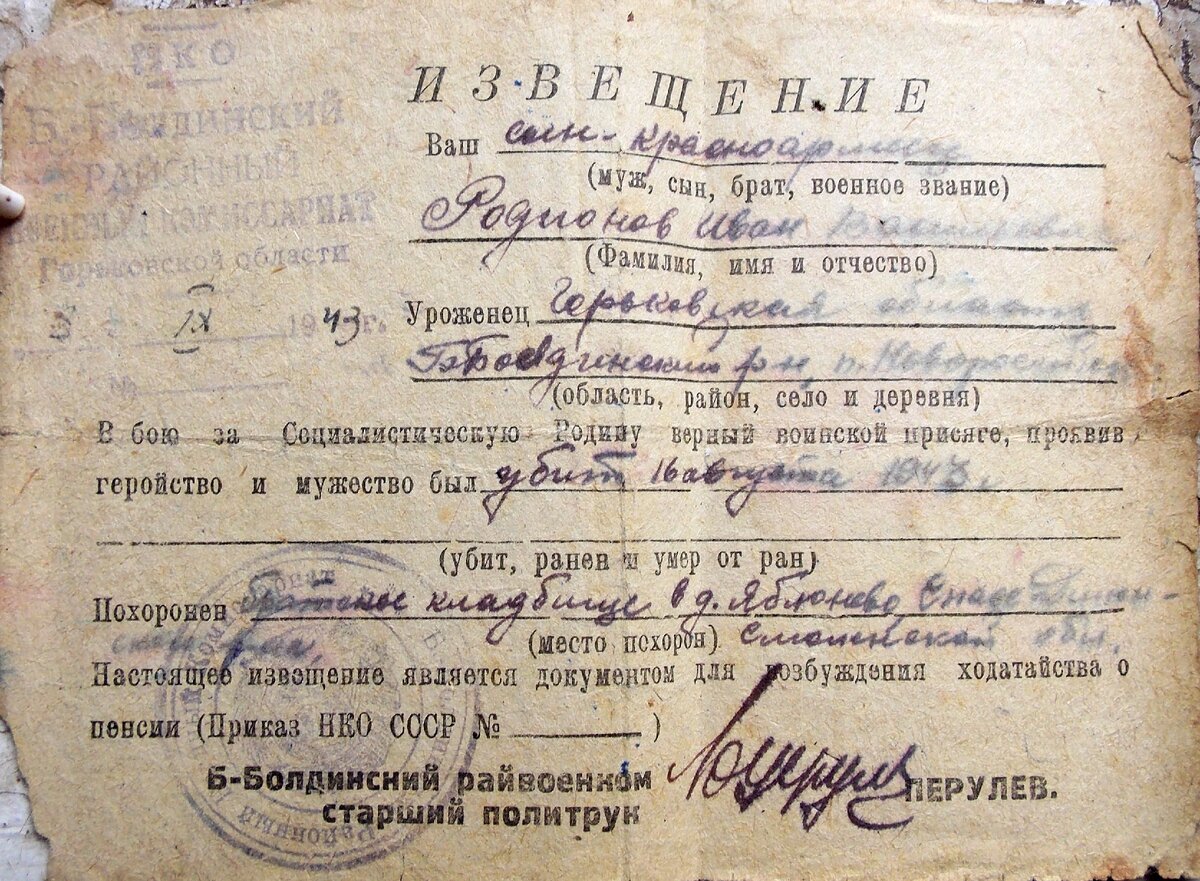 НКО
Б.-Болдинский
РАЙОННЫЙ
ВОЕННЫЙ КОМИССАРИАТ
Горьковской области
IX 1943 г.
№
ИЗВЕЩЕНИЕ
Ваш сын - красноармеец
(муж, сын, брат, военное звание)
Родионов Иван Васильевич
(Фамилия, имя и отчество)
Уроженец Горьковская область
ББолдинский р-н, п.
(область, район, село и деревня)
В бою за Социалистическую Родину верный воинской присяге, проявив
геройство и мужество был убит 16 августа 1943 г.
(убит, ранен и умер от ран)
Похоронен братское кладбище в д. Яблонево Спас Демен-
(место похорон) Смоленской обл.
Настоящее извещение является документом для возбуждения ходатайства о
пенсии (Приказ НКО СССР № )
Б-Болдинский райвоенком
старший политрук
ПЕРУЛЕВ.